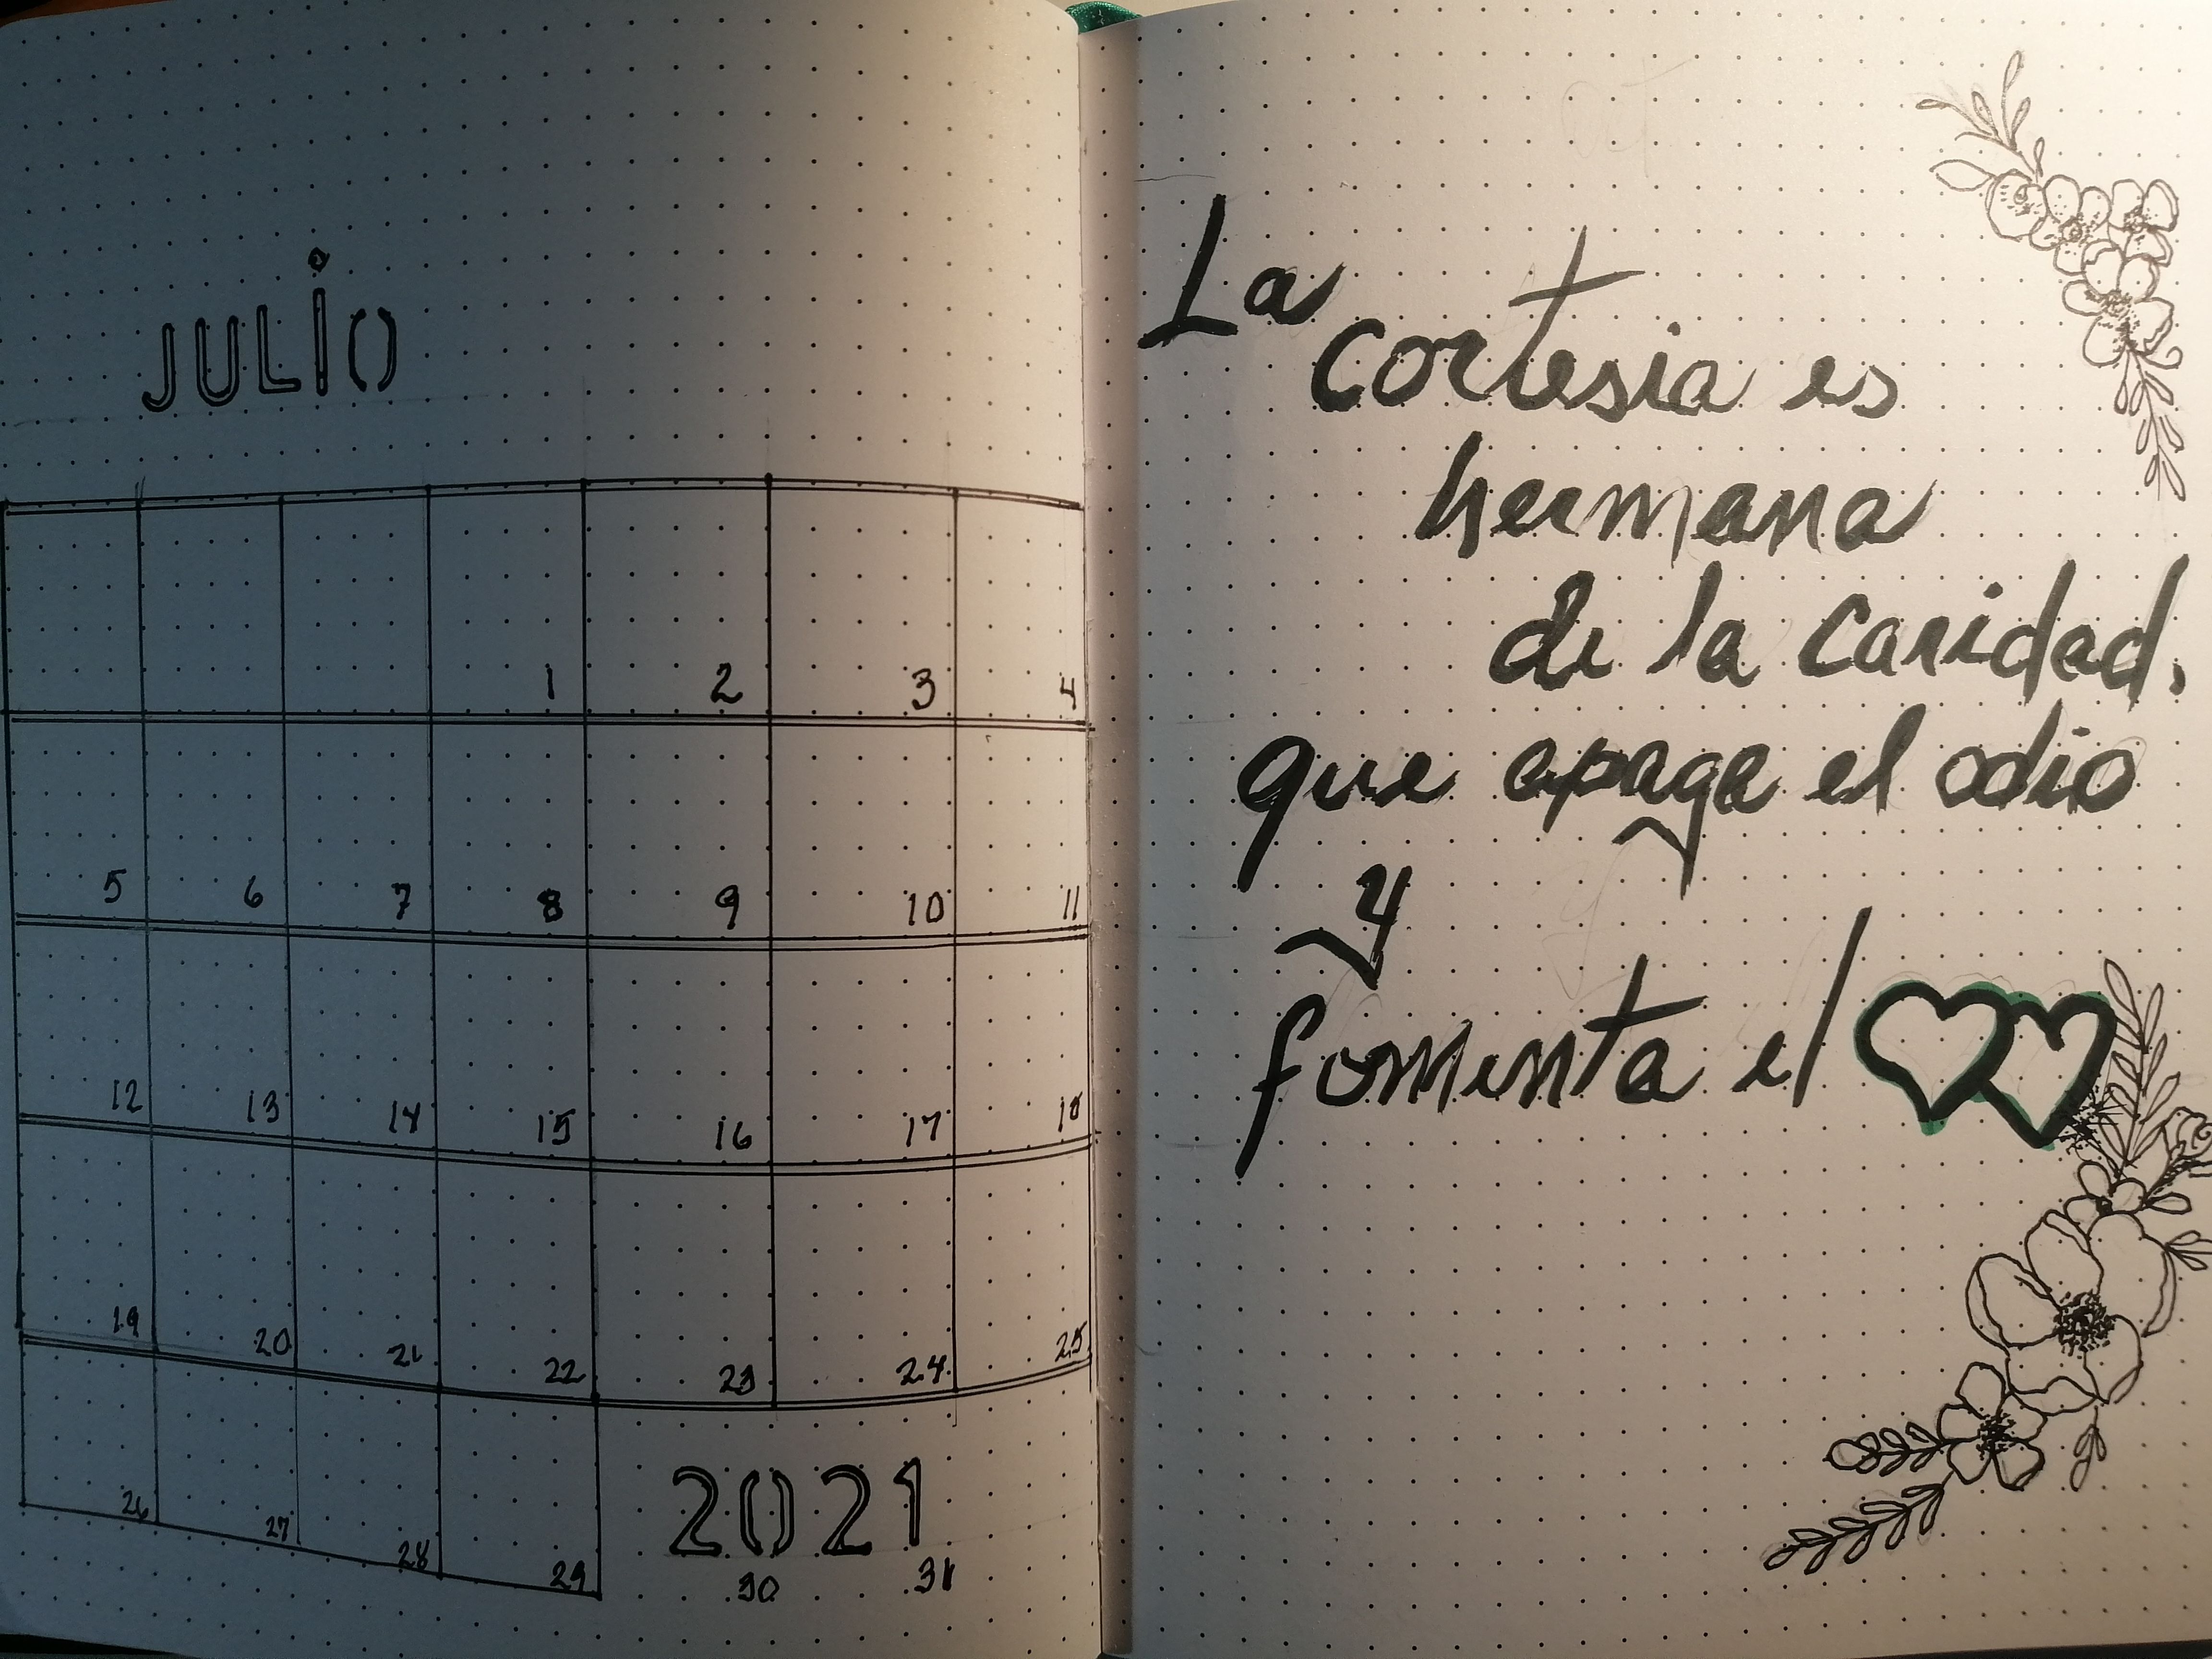 JULIO
1 2 3 4
5 6 7 8 9 10 11
12 13 14 15 16 17 18
19 20 21 22 23 24 25
26 27 28 29
2021
30 31
La
cortesia es
hermana
de la caridad,
que apaga el odio
y
fomenta el